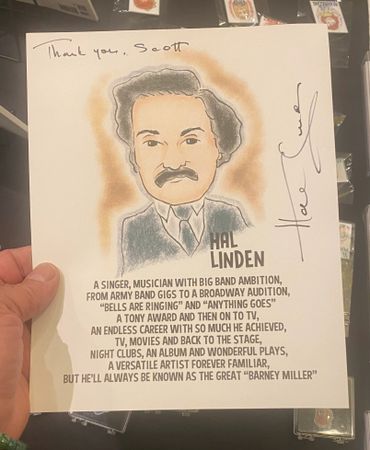 Thank you, Scott
Hal Linden
HAL
LINDEN
A SINGER, MUSICIAN WITH BIG BAND AMBITION,
FROM ARMY BAND GIGS TO A BROADWAY AUDITION,
"BELLS ARE RINGING" AND "ANYTHING GOES"
A TONY AWARD AND THEN ON TO TV,
AN ENDLESS CAREER WITH SO MUCH HE ACHIEVED,
TV, MOVIES AND BACK TO THE STAGE,
NIGHT CLUBS, AN ALBUM AND WONDERFUL PLAYS,
A VERSATILE ARTIST FOREVER FAMILIAR,
BUT HE'LL ALWAYS BE KNOWN AS THE GREAT "BARNEY MILLER"